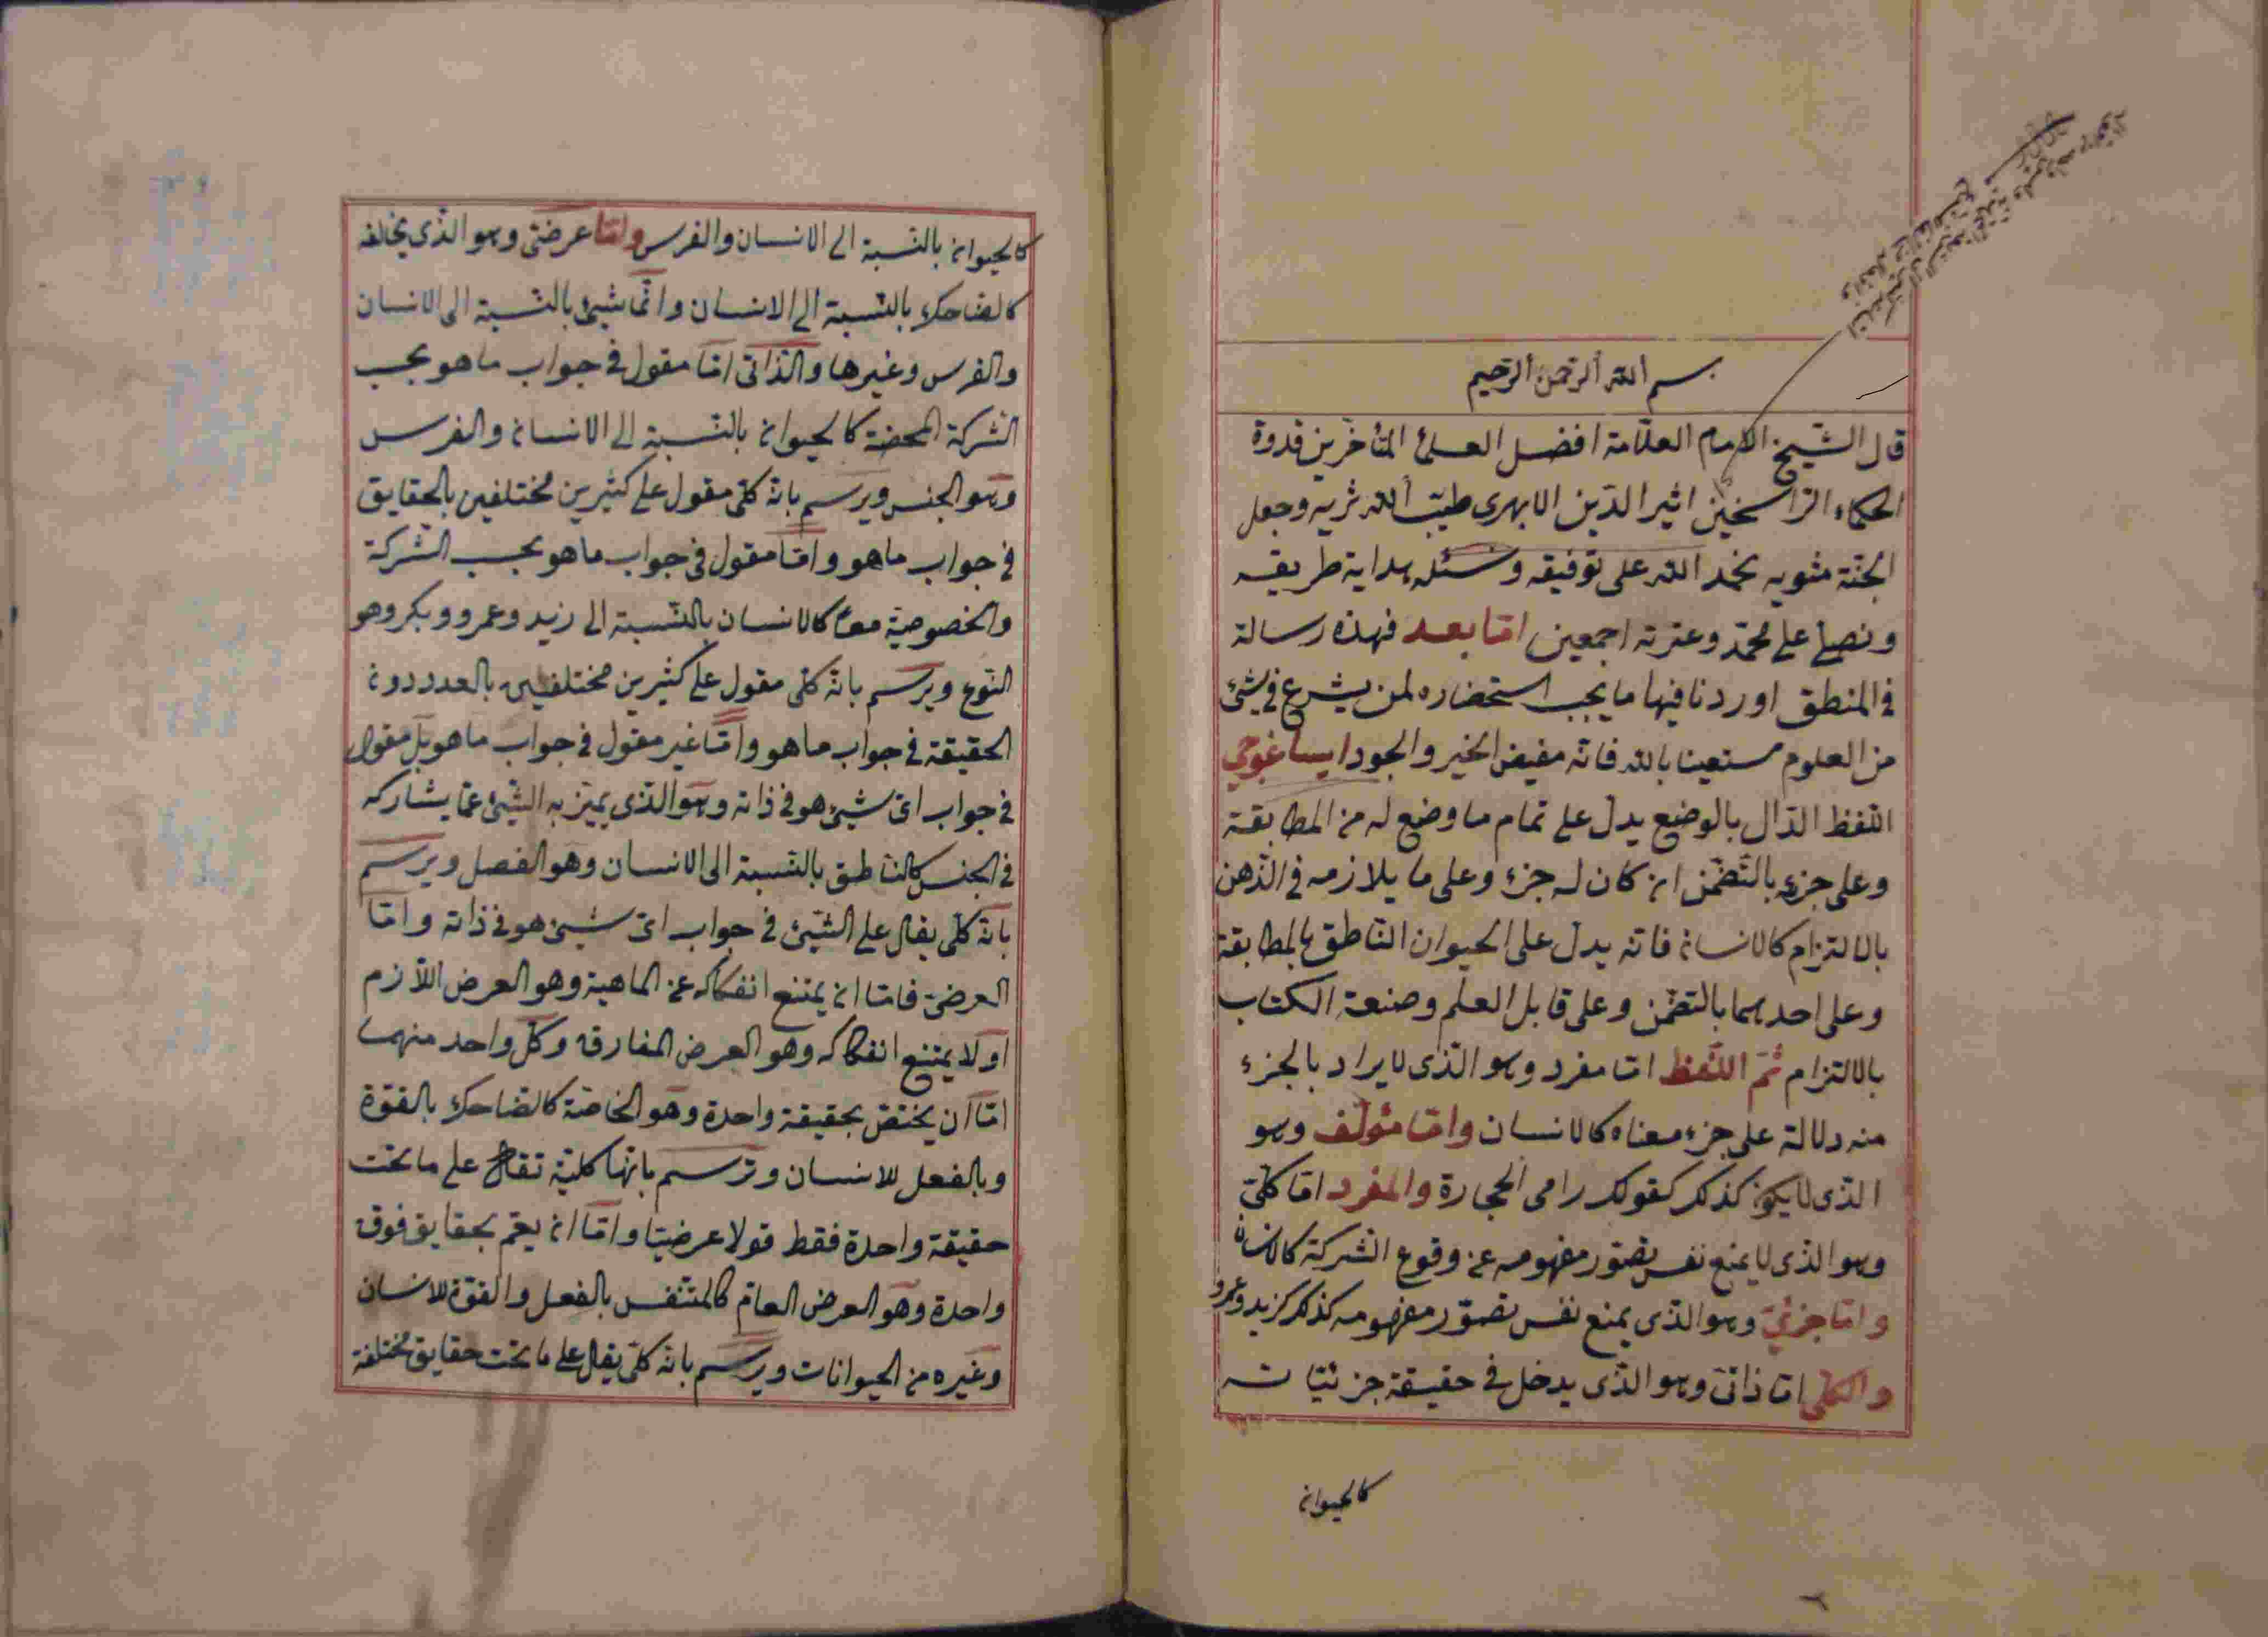 بسم الله الرحمن الرحيم
قال الشيخ الامام العلامة افضل العلماء المتأخرين قدوة
الحكماء الراسخين اثير الدين الابهرى طيب الله ثريه وجعل
الجنة مثويه نحمد الله على توفيقه ونسئله هداية طريقه
ونصلى على محمد وعترته اجمعين اما بعد فهذه رسالة
فى المنطق اوردنا فيها ما يجب استحضاره لمن يشرع فى شئ
من العلوم مستعينا بالله فانه مفيض الخير والجود ايساغوجى
اللفظ الدال بالوضع يدل على تمام ما وضع له من المطابقة
وعلى جزءه بالتضمن ان كان له جزء وعلى ما يلازمه فى الذهن
بالالتزام كالانسان فانه يدل على الحيوان الناطق بالمطابقة
وعلى احدهما بالتضمن وعلى قابل العلم وصنعة الكتاب
بالالتزام ثم اللفظ اما مفرد وهو الذى لا يراد بالجزء
منه دلالة على جزء معناه كالانسان واما مئولف وهو
الذى لا يكون كذلك كقولك رامى الحجارة والمفرد اما كلى
وهو الذى لا يمنع نفس تصور مفهومه عن وقوع الشركة كالانسان
واما جزئى وهو الذى يمنع نفس تصور مفهومه كذلك كزيد وعمرو
والكلى اما ذاتى وهو الذى يدخل فى حقيقة جزئياته
كالحيوان
كالحيوان بالنسبة الى الانسان والفرس واما عرضى وهو الذى يخالفه
كالضاحك بالنسبة الى الانسان والماشيئ بالنسبة الى الانسان
والفرس وغيرها والذاتى اما مقول فى جواب ما هو بحسب
الشركة المحضة كالحيوان بالنسبة الى الانسان والفرس
وهو الجنس ويرسم بانه كلى مقول على كثيرين مختلفين بالحقايق
فى جواب ما هو واما مقول فى جواب ما هو بحسب الشركة
والخصوصية معا كالانسان بالنسبة الى زيد وعمرو وبكر وهو
النوع ويرسم بانه كلى مقول على كثيرين مختلفين بالعدد دون
الحقيقة فى جواب ما هو واما غير مقول فى جواب ما هو بل مقول
فى جواب اى شيئ هو فى ذاته وهو الذى يميز به الشيئ عما يشاركه
فى الجنس كالناطق بالنسبة الى الانسان وهو الفصل ويرسم
بانه كلى يقال على الشيئ فى جواب اى شيئ هو فى ذاته واما
العرضى فاما ان يمتنع انفكاكه عن الماهية وهو العرض اللازم
او لا يمتنع انفكاكه وهو العرض المفارق وكل واحد منهما
اما ان يختص بحقيقة واحدة وهو الخاصة كالضاحك بالقوة
وبالفعل للانسان وترسم بانها كلية تقال على ما تحت
حقيقة واحدة فقط قولا عرضيا واما ان يعم بحقايق فوق
واحدة وهو العرض العام كالمتنفس بالفعل والقوة للانسان
وغيره من الحيوانات ويرسم بانه كلى يقال على ما تحت حقايق مختلفة